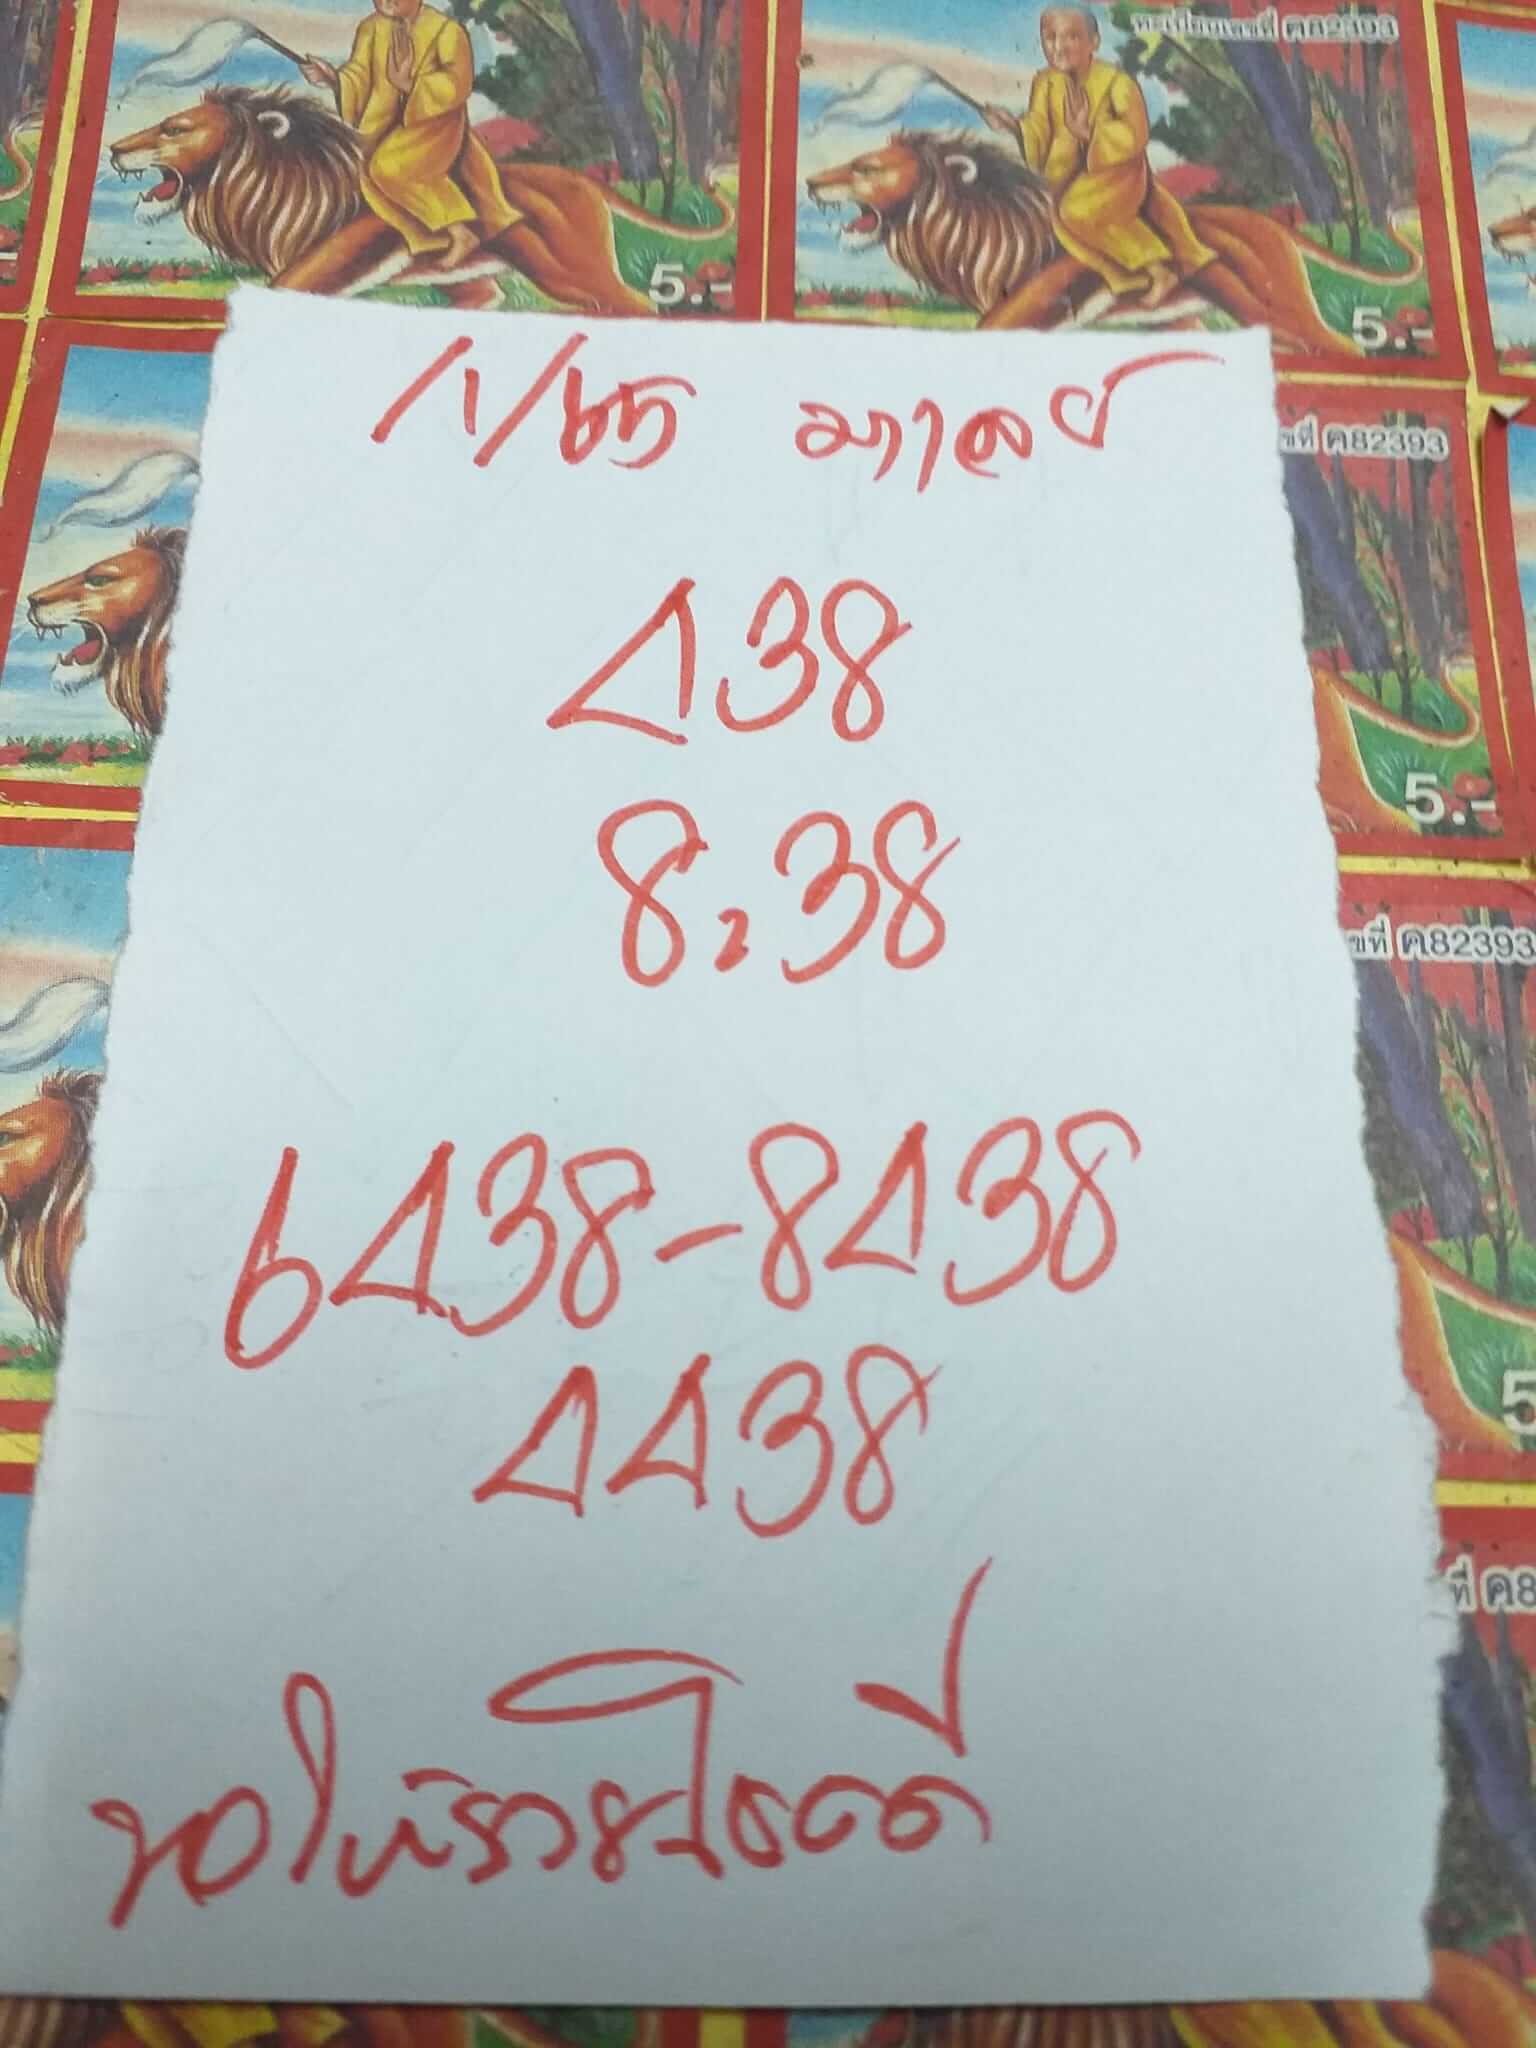 ทะเบียนเลขที่ ค82393
5.-
5.-
1/1/65 มาเลย์
438
ขที่ ค82393
8,38
5.-
ขที่ ค82393
6438-8438
4438
5
ที่ ค8
ขอให้รวยโชคดี